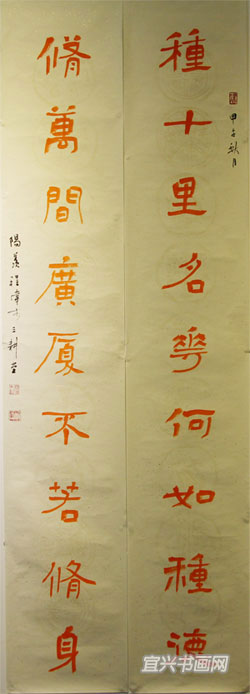 種十里名花何如種德
甲午秋月
脩萬間廣厦不若脩身
陽羡
宜兴书画网